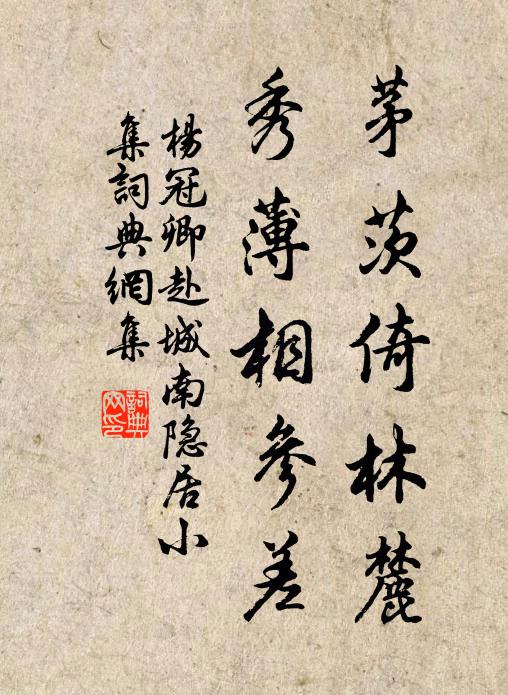 茅茨倚林麓
秀薄相參差
楊冠卿赴城南隐居小
集詞典網集
詞典
网印